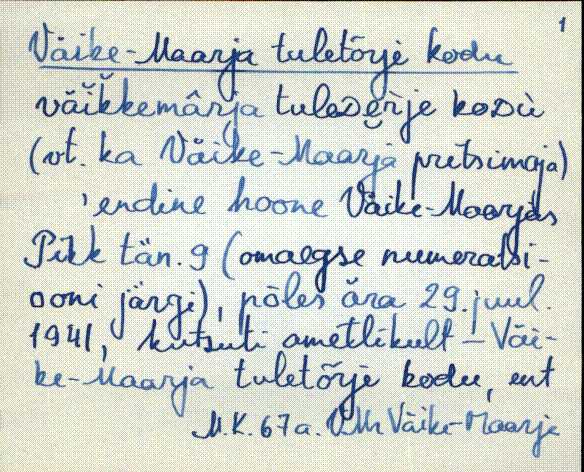 1
Väike-Maarja tuletõrje kodu
väikkemârja tuleɜerje kosù
(vt. ka Väike-Maarja pritsimaja)
'endine hoone Väike-Maarjas
Pikk tän. 9 (omaegse numeratsi-
ooni järgi), põles ära 29. juul.
1941, kutsuti ametlikult – Väi-
ke-Maarja tuletõrje kodu, ent
M.K. 67a. VMr Väike-Maarja